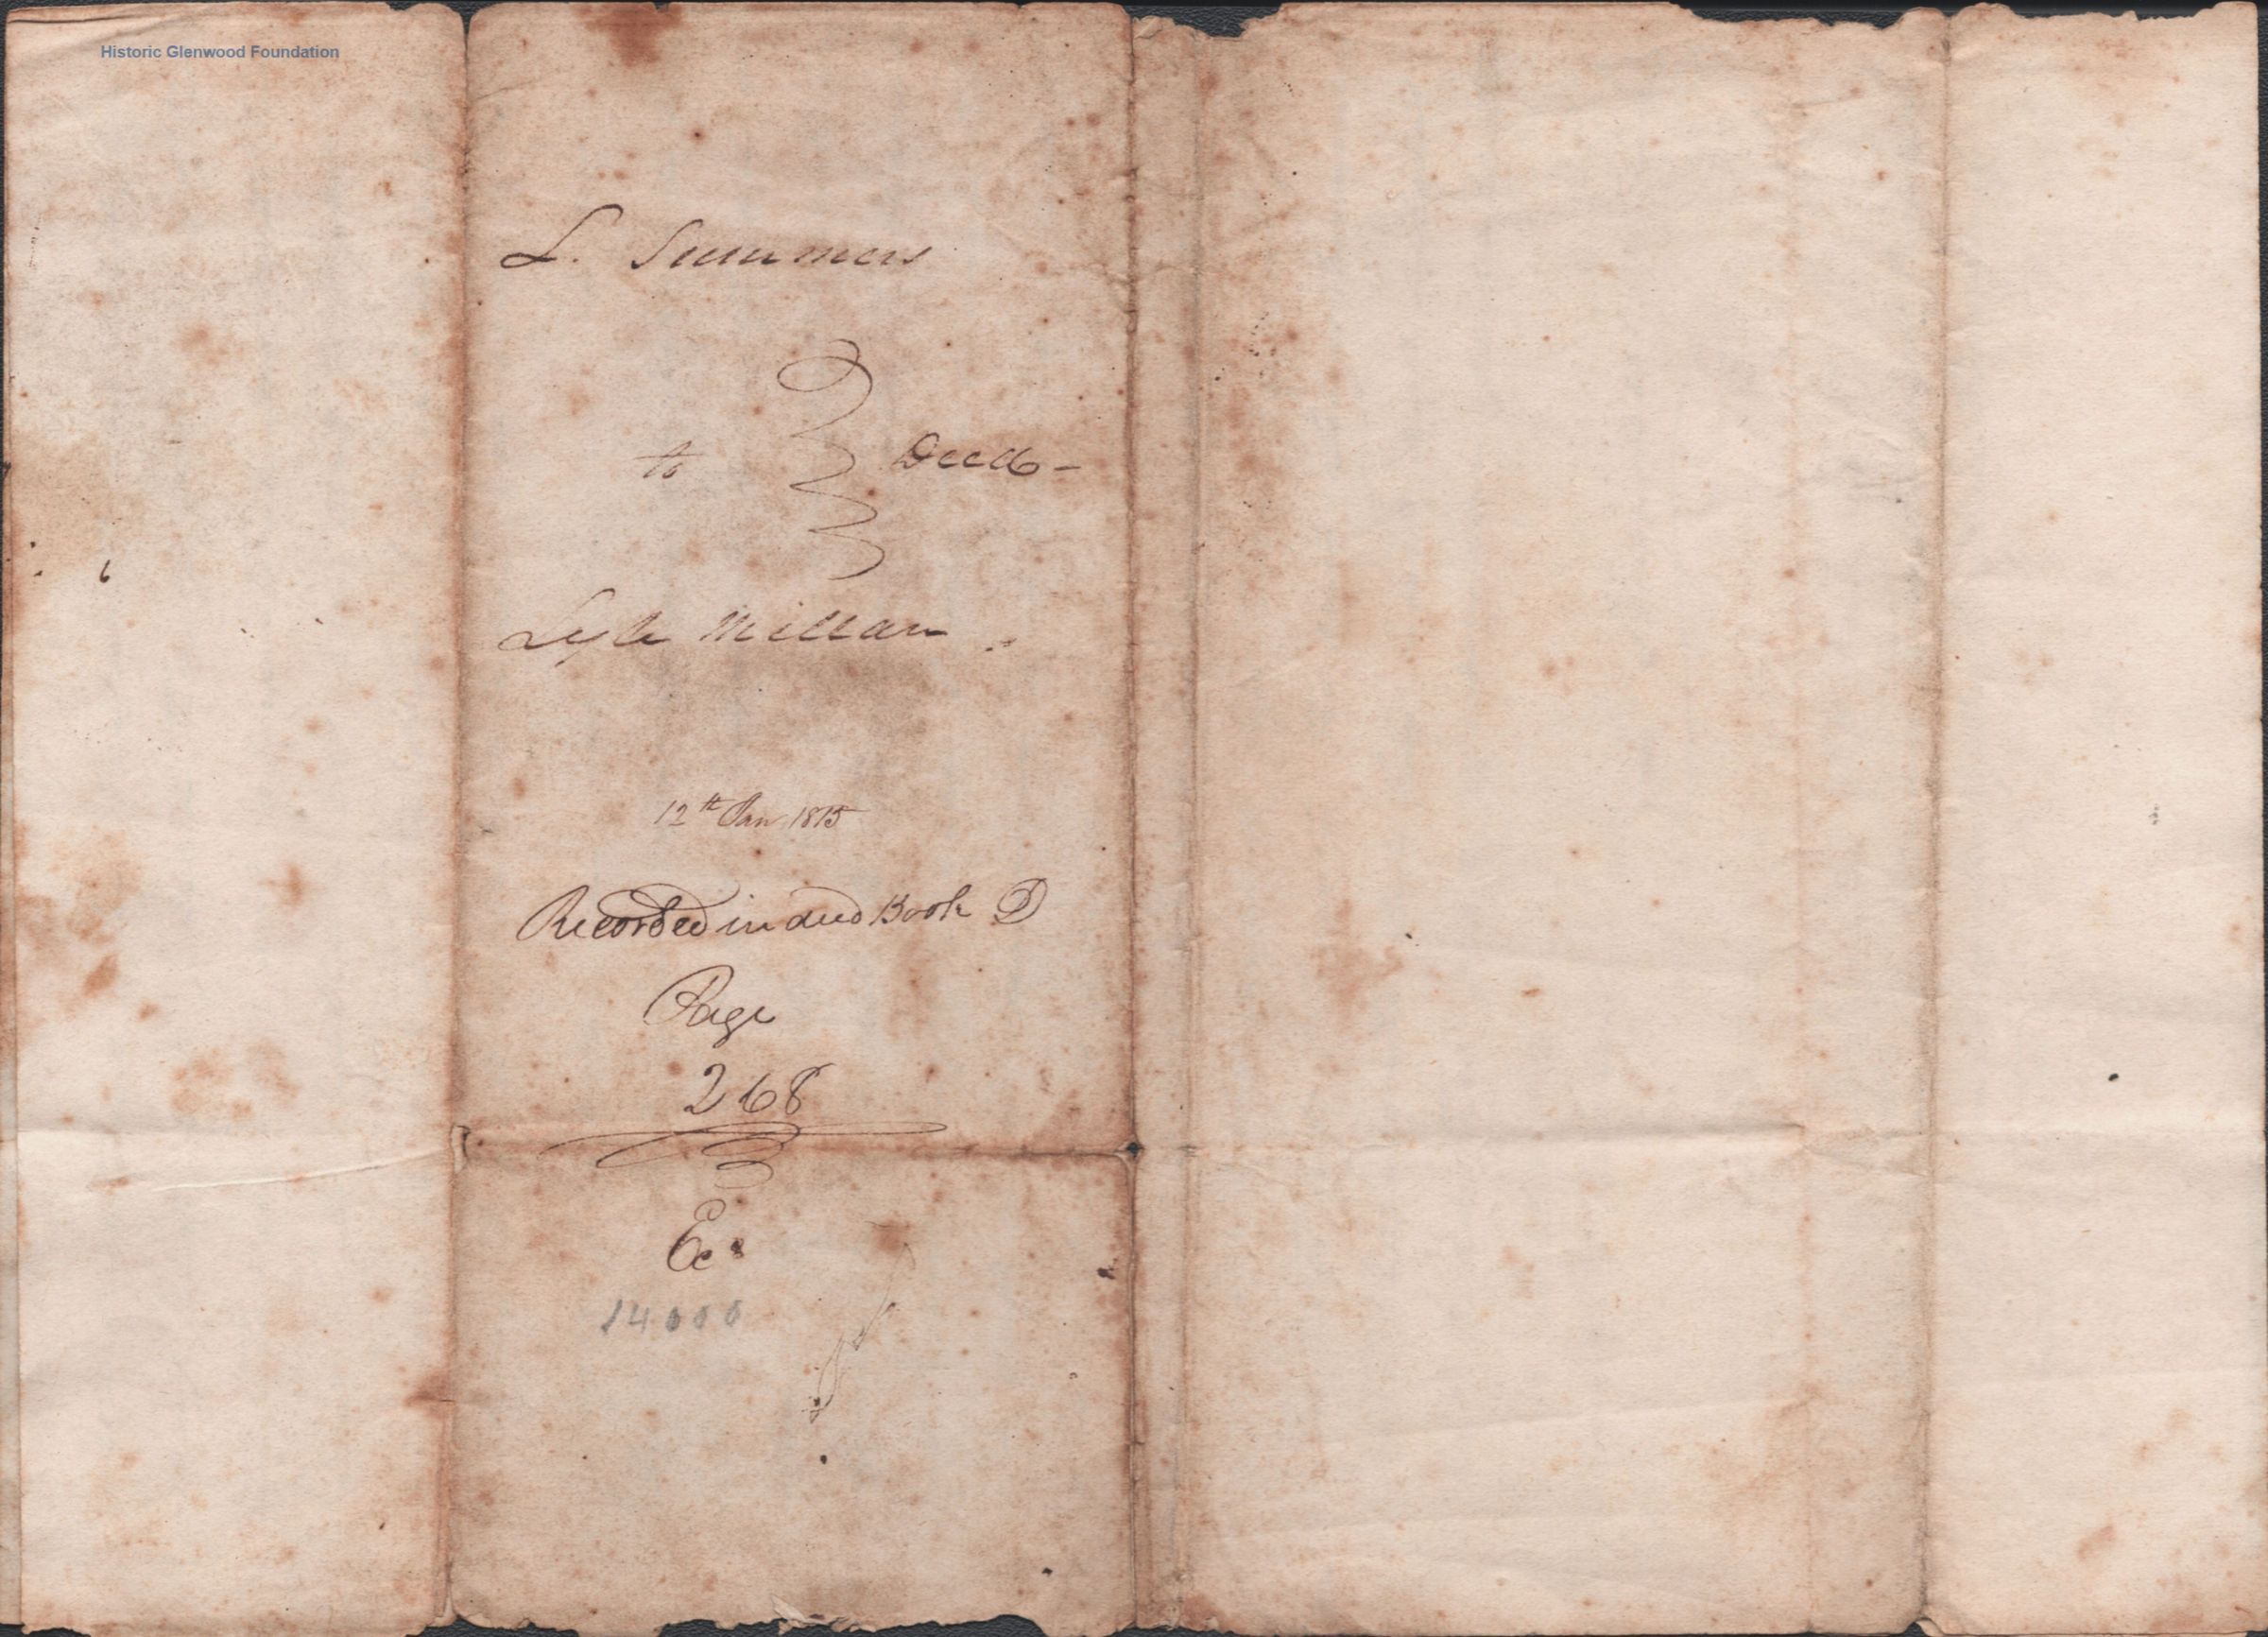 Historic Glenwood Foundation
L. Summers
to Deed -
Lyle Millan.
12th Jan 1815
Recorded in deed Book D
Page
268
Ex
14000